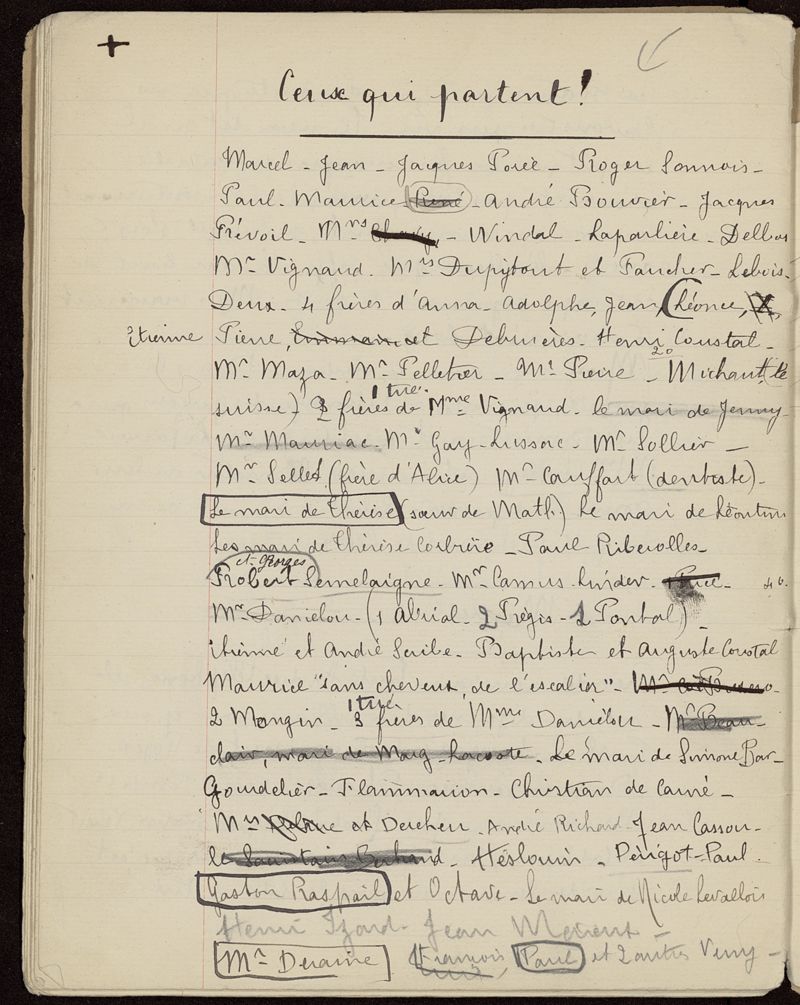 Ceux qui partent!
Marcel - Jean - Jacques Porée - Roger Sannois -
Paul - Maurice - René - André Bouvier - Jacques
Prévoil - Mrs - Windal - Laparlière - Delbos
Mr Vignaud. Mrs Dupytout et Faucher - Lebois-
Deux - 4 frères d'Anna - Adolphe, Jean, Léonce,
Etienne Pierre, et Debrières - Henri Coustal -
Mr Maza - Mr Pelletier - Mr Pierre - 2e Michaut (le
suisse) 3 frères de Mme Vignaud - le mari de Jenny
1 tué.
Mr Mauriac - Mr Gay-Lussac - Mr Sollier -
Mr Sellet (frère d'Alice) Mr Cauffart (dentiste) -
Le mari de Thérèse (sœur de Math.) Le mari de Léontine
Le mari de Thérèse Corbière - Paul Riberolles -
et Georges
Robert Semelaigne - Mr Camus - 
Mr Danielou - (1 Abrial - 2 Régis - 1 Pontal) -
Etienne et André Scribe - Baptiste et Auguste Coustal
Maurice "sans cheveux, de l'escalier" -
2 Mongin - 3 frères de Mme Daniélou - Mr Beau-
1 tué
clair, mari de Marg. Lacoste - Le mari de Simone Bar-
Gourdelier - Flammarion - Christian de Carné -
Mrs et Derchen - André Richard - Jean Cassou -
le - Héslouin - Périgot - Paul
Gaston Raspail et Octave - Le mari de Nicole Levallois
Henri Izard - Jean
Mr Deraine François, Paul et 2 autres Viny -